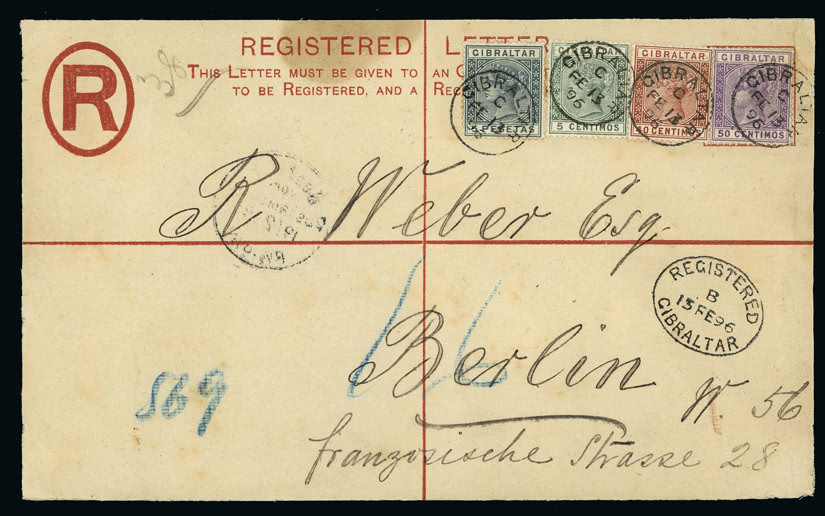 R
REGISTERED LETTER
THIS LETTER MUST BE GIVEN TO AN
TO BE REGISTERED, AND A
38
GIBRALTAR
5 PESETAS
GIBRALTAR
C
FE 13
96
5 CENTIMOS
GIBRALTAR
C
FE 13
96
GIBRALTAR
40 CENTIMOS
GIBRALTAR
C
FE 13
96
50 CENTIMOS
GIBRALTAR
C
FE 13
96
R Weber Esq.
REGISTERED
B
13 FE 96
GIBRALTAR
16
Berlin
W. 56
569
französische Strasse 28